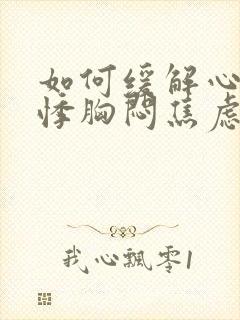 如何缓解心
悸胸闷焦虑
我心飄零1